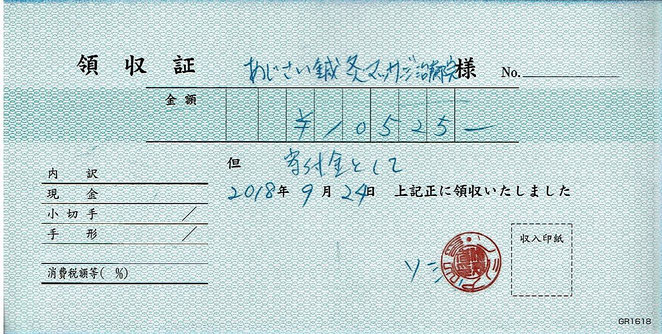 領収証 あじさい鍼灸マッサージ治療院様 No.
金額 ¥10525—
但 寄付金として
2018年9月24日 上記正に領収いたしました
内訳
現金
小切手 /
手形 /
消費税額等( %)
収入印紙
GR1618